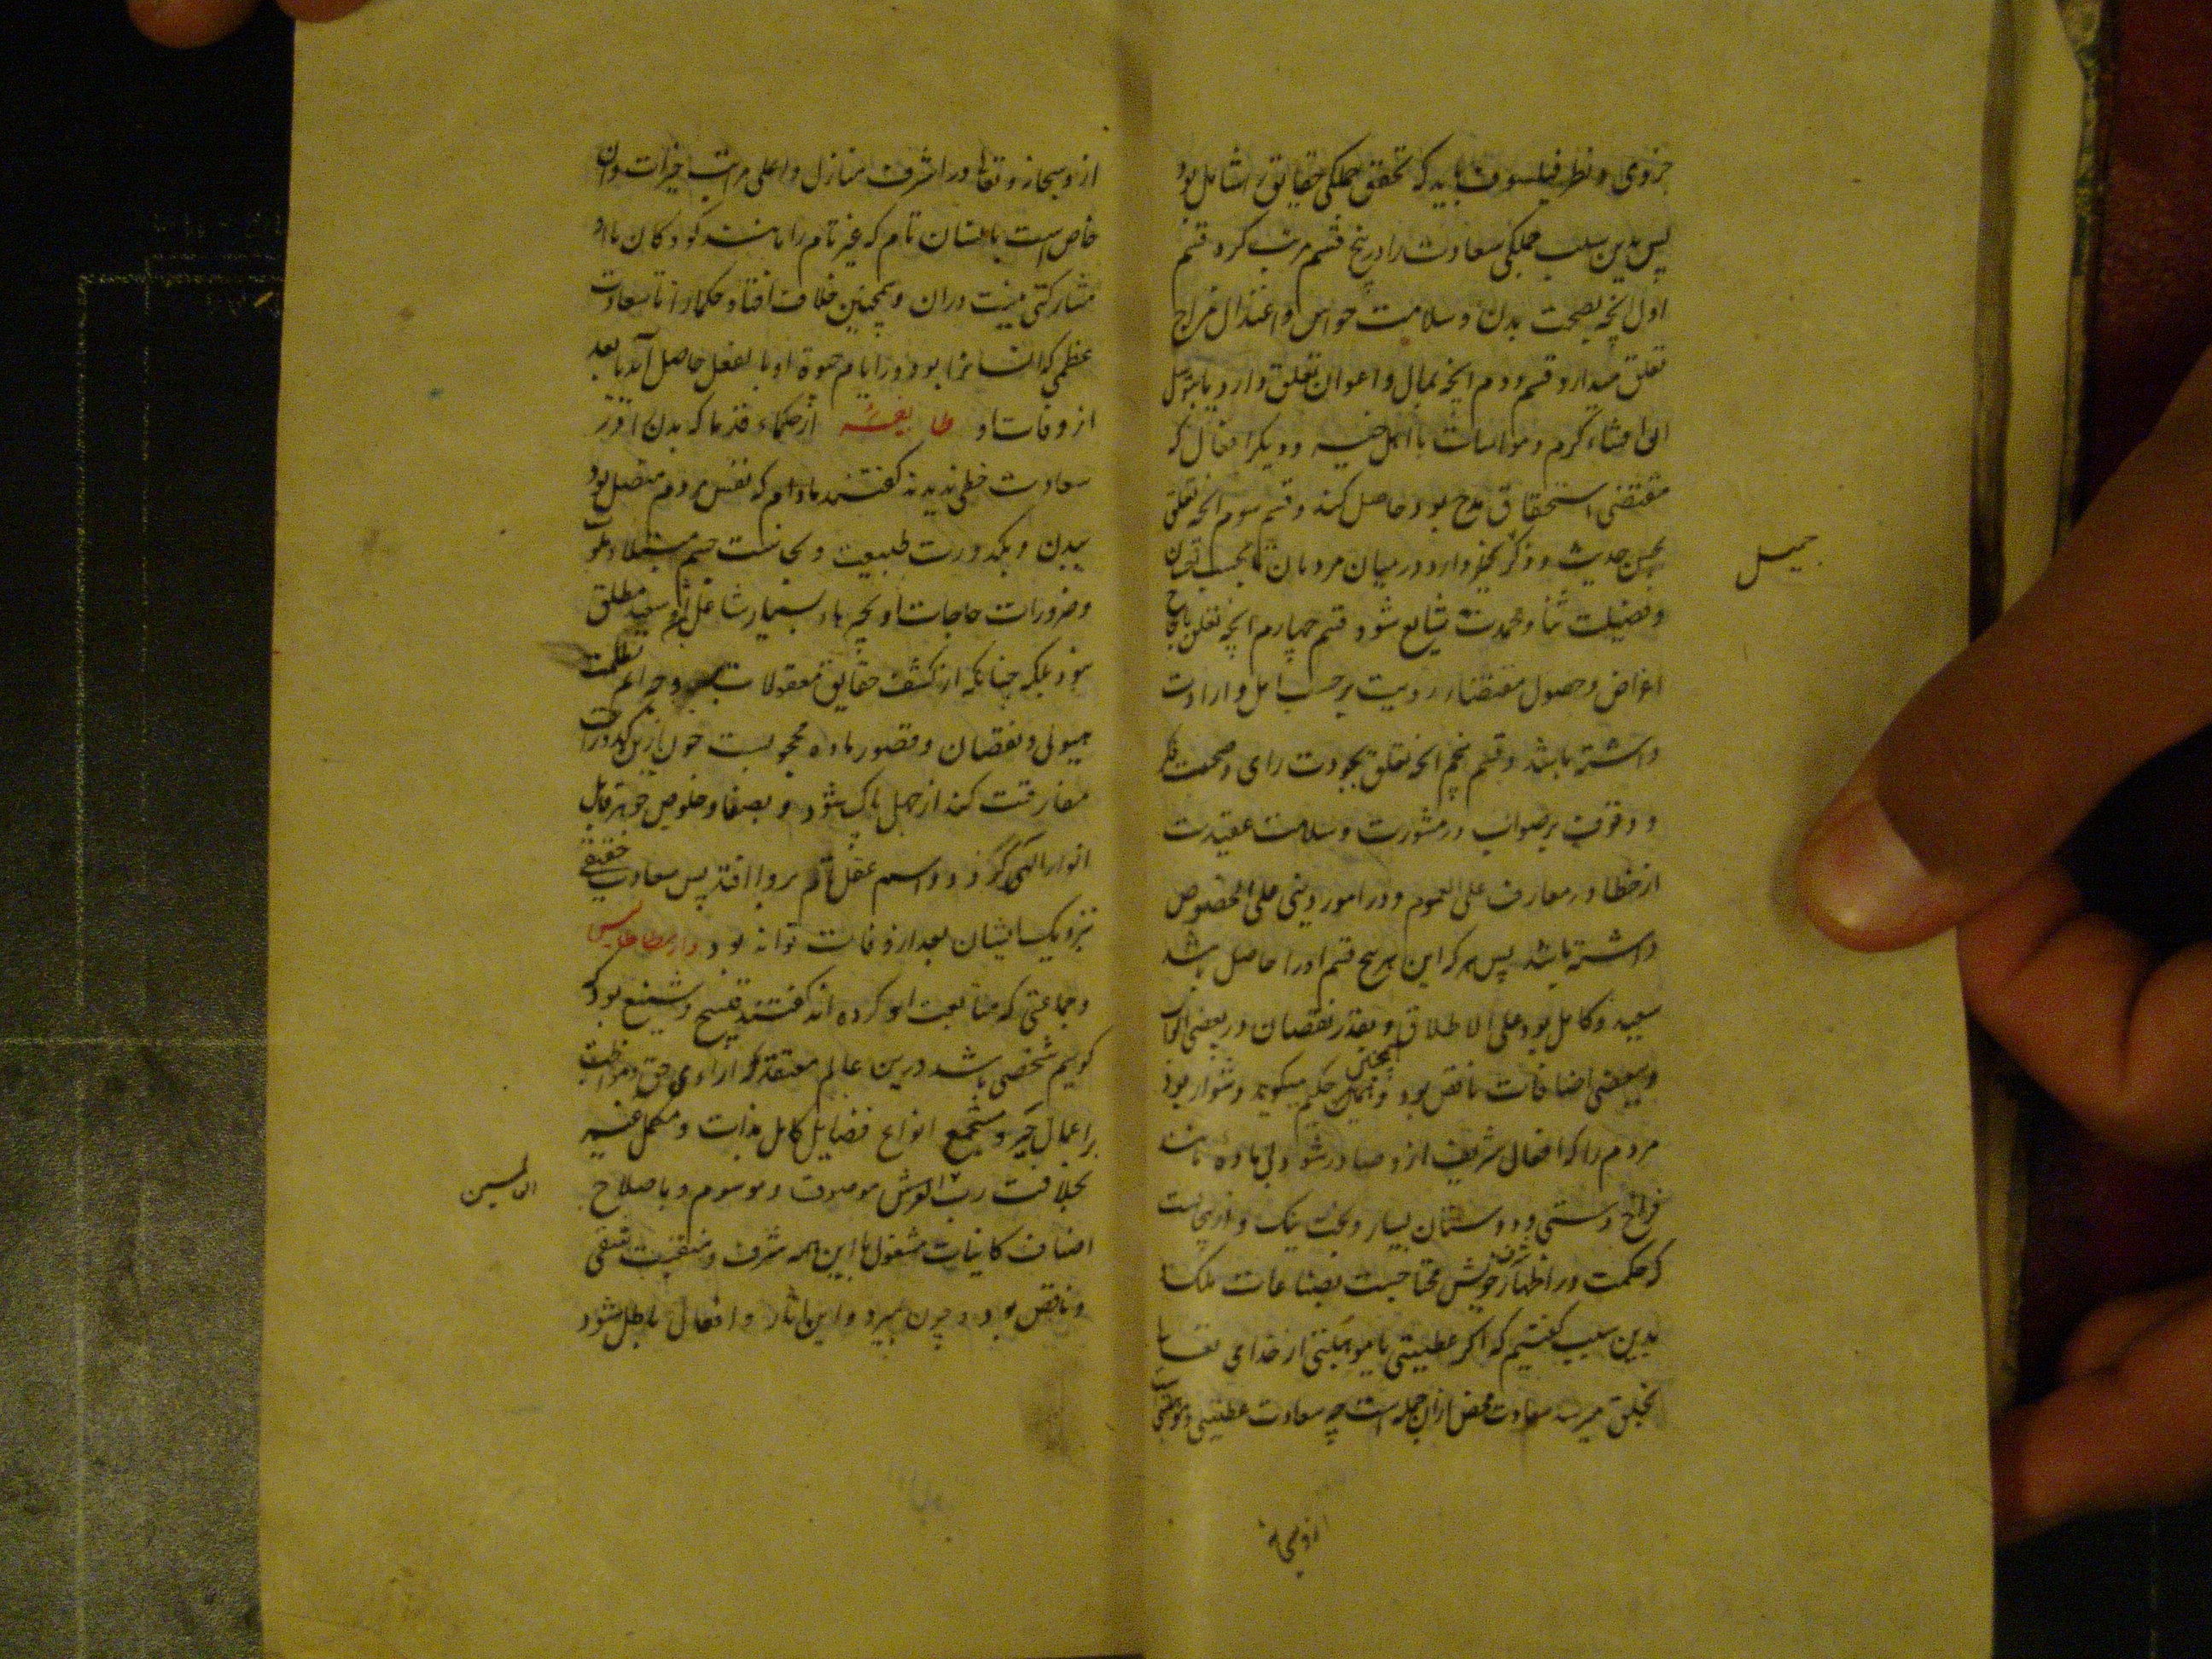 جزوی و نظر فیلسوف باید که تحقق جملگی حقایق را شامل بود
پس بدین سبب جملگی سعادت را در پنج قسم مرتب کرد قسم
اول آنچه بصحت بدن و سلامت حواس و اعتدال مزاج
تعلق میدارد قسم دوم آنچه بمال و اعوان تعلق دارد تا بتوسل
آن افشاء کرم و مواسات با اهل خیر و دیگر افعال که
مقتضی استحقاق مدح بود حاصل کند و قسم سوم آنچه تعلق
بحسن حدیث و ذکر بخیر دارد در میان مردمان تا بحسب آن
و فضیلت ثنا و محمدت شایع شود قسم چهارم آنچه تعلق بانجاح
اغراض و حصول مقتضاء رویت بر حسب امل و ارادت
داشته باشد و قسم پنجم آنچه تعلق بجودت رای و صحت فکر
و وقوف بر صواب در مشورت و سلامت عقیدت
از خطا در معارف علی العموم و در امور دینی علی الخصوص
داشته باشد پس هر که این هر پنج قسم او را حاصل باشد
سعید و کامل بود علی الاطلاق و بقدر نقصان در بعضی ابواب
و بعضی اضافات ناقص بود و همچنین حکیم میگوید دشوار بود
مردم را که افعال شریف ازو صادر شود بی ماده مانند
فراخ دستی و دوستان بسیار و بخت نیک و ازینجاست
که حکمت در اظهار شرف خویش محتاجست بصناعات ملک
بدین سبب گفتیم که اگر عطیتی یا موهبتی از خدای تعالی
بخلق میرسد سعادت محض ازان جمله است چه سعادت عطیتی و موهبتی
جمیل
ازو سبحانه
ازو سبحانه و تعالی در اشرف منازل و اعلی مراتب خیرات و آن
خاص است بانسان تام که غیر تام را مانند کودکان با او
مشارکتی نیست دران و همچنین خلاف افتاد حکما را تا سعادت
عظمی که انسانرا بود در ایام حیوة او بالفعل حاصل آید یا بعد
از وفات او طایفهٔ از حکماء قدما که بدن را در
سعادت حظی ندیدند گفتند مادام که نفس مردم متصل بود
ببدن و بکدورت طبیعت و نجاست جسم مبتلا و ملوث
و ضرورات حاجات او بچیزهاء بسیار شاغل او سعید مطلق
نبود بلکه چنانکه از کشف حقایق معقولات بسبب ظلمت
هیولی و نقصان و قصور ماده محجوبست چون ازین کدورات
مفارقت کند از جهل پاک شود و بصفا و خلوص جوهر قابل
انوار الهی گردد و اسم عقل تام برو افتد پس سعادت حقیقی
نزدیک ایشان بعد از وفات تواند بود و ارسطاطالیس
و جماعتی که متابعت او کرده اند گفتند قبیح و شنیع بود که
گوییم شخصی باشد درین عالم معتقد آراء حق و مواظب
بر اعمال خیر و مستجمع انواع فضایل کامل بذات و مکمل غیر
بخلافت رب العرش موصوف و موسوم و باصلاح
اصناف کاینات مشغول با این همه شرف و منقبت شقی
و ناقص بود و چون بمیرد و این آثار و افعال باطل شود